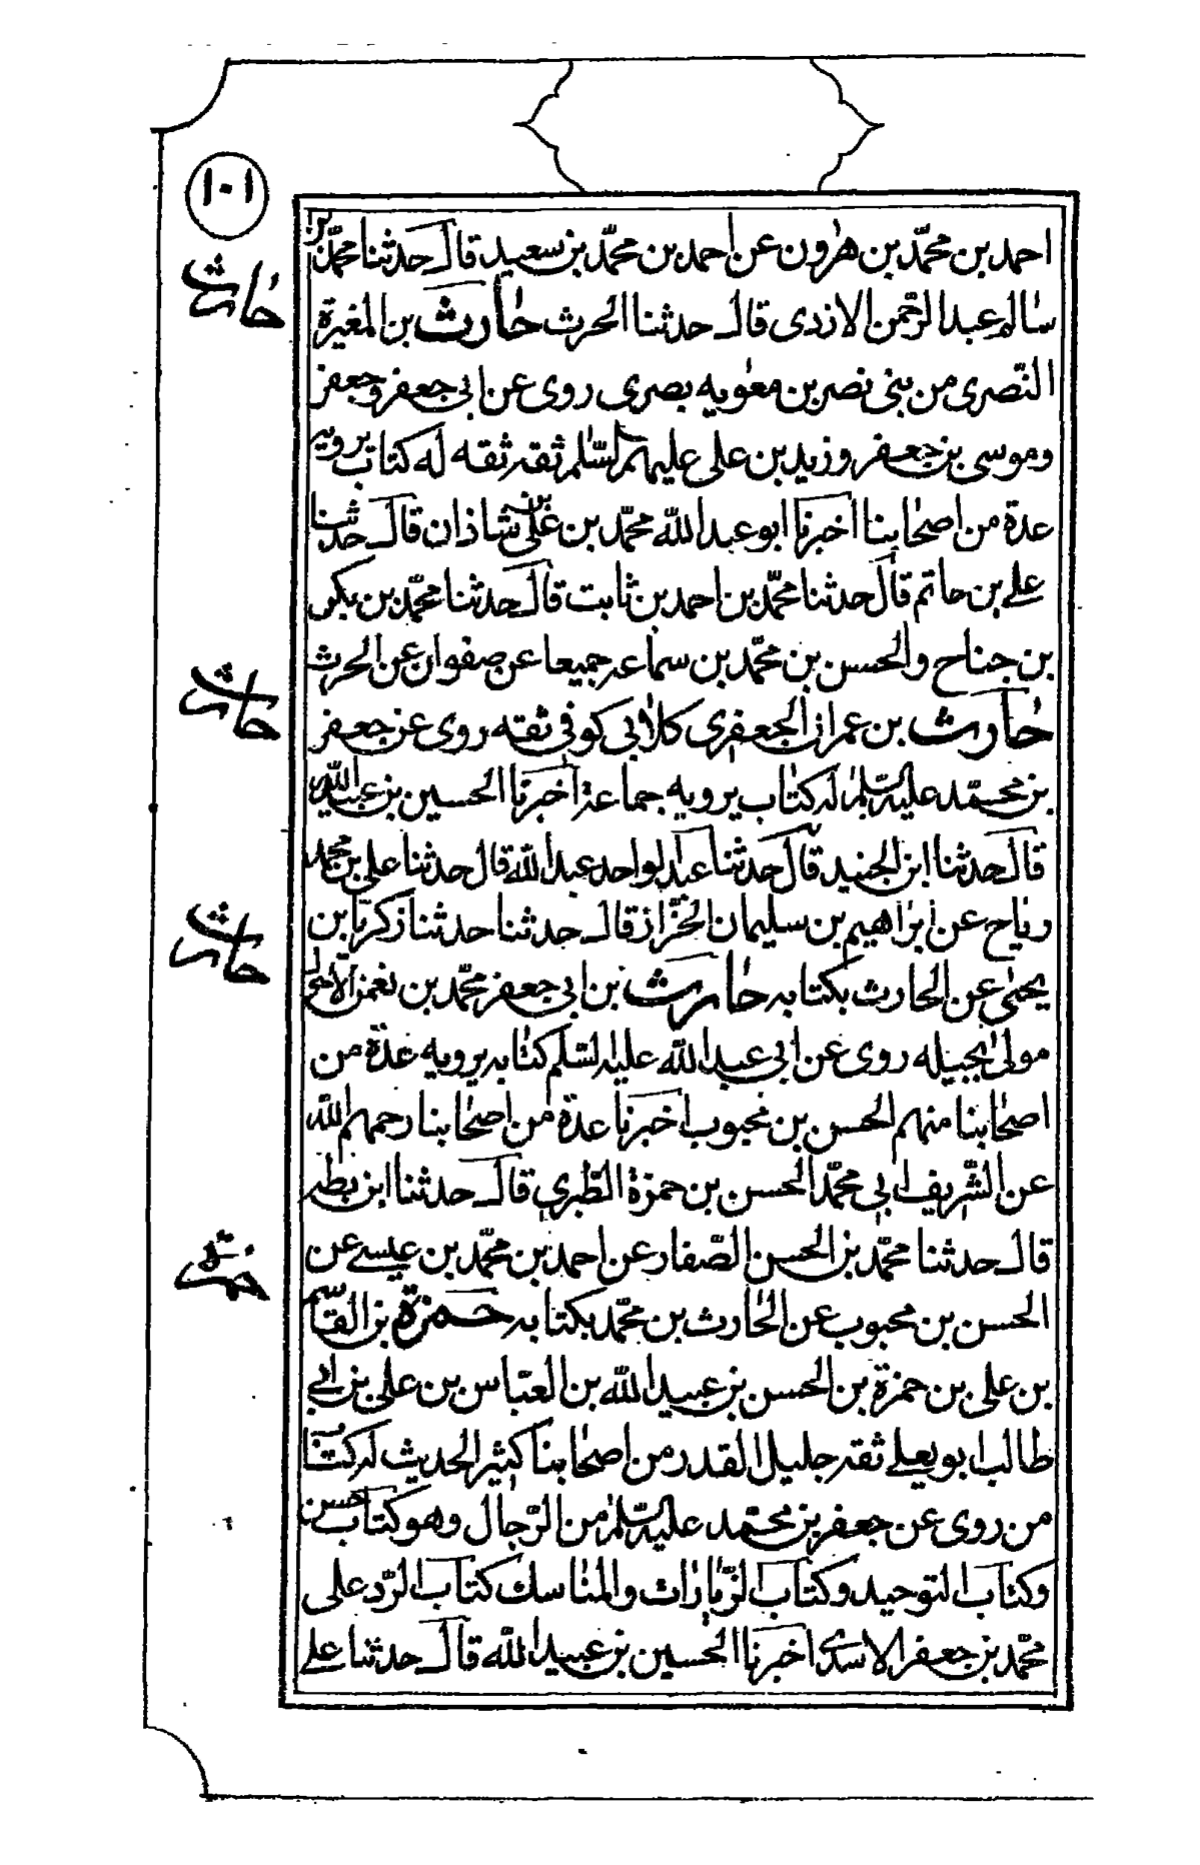 ١٠١
احمد بن محمّد بن هرون عن احمد بن محمّد بن سعيد قال حدثنا محمّد بن
حارث
سالم عبد الرّحمن الازدى قال حدثنا الحرث حارث بن المغيرة
النّصرى من بنى نصر بن معوية بصرى روى عن ابى جعفر وجعفر
وموسى بن جعفر وزيد بن على عليهم السّلم ثقه ثقه له كتاب يرويه
عدة من اصحابنا اخبرنا ابو عبد الله محمّد بن على بن شاذان قال حدثنا
على بن حاتم قال حدثنا محمّد بن احمد بن ثابت قال حدثنا محمّد بن بكر
بن جناح والحسن بن محمّد بن سماعه جميعا عن صفوان عن الحرث
حارث
حارث بن عمران الجعفرى كلابى كوفى ثقه روى عن جعفر
بن محمّد عليه السّلم له كتاب يرويه جماعة اخبرنا الحسين بن عبيد الله
قال حدثنا ابن الجنيد قال حدثنا عبد الواحد عبد الله قال حدثنا على بن محمّد
رياح عن ابراهيم بن سليمان الخزّاز قال حدثنا حدثنا زكريا بن
حارث
يحيى عن الحارث بكتابه حارث بن ابى جعفر محمّد بن نعمن الاحول
مولى بجيله روى عن ابى عبد الله عليه السّلم كتابه يرويه عدّة من
اصحابنا منهم الحسن بن محبوب اخبرنا عدة من اصحابنا رحمهم الله
عن الشّريف ابى محمّد الحسن بن حمزة الطّبرى قال حدثنا ابن بطه
قال حدثنا محمّد بن الحسن الصّفار عن احمد بن محمّد بن عيسى عن
حمزة
الحسن بن محبوب عن الحارث بن محمّد بكتابه حمزة بن القاسم
بن على بن حمزة بن الحسن بن عبيد الله بن العبّاس بن على بن ابى
طالب ابو يعلى ثقه جليل القدر من اصحابنا كثير الحديث له كتاب
من روى عن جعفر بن محمّد عليه السّلم من الرّجال وهو كتاب حسن
وكتاب التوحيد وكتاب الزّيارات والمناسك كتاب الرّد على
محمّد بن جعفر الاسدى اخبرنا الحسين بن عبيد الله قال حدثنا على